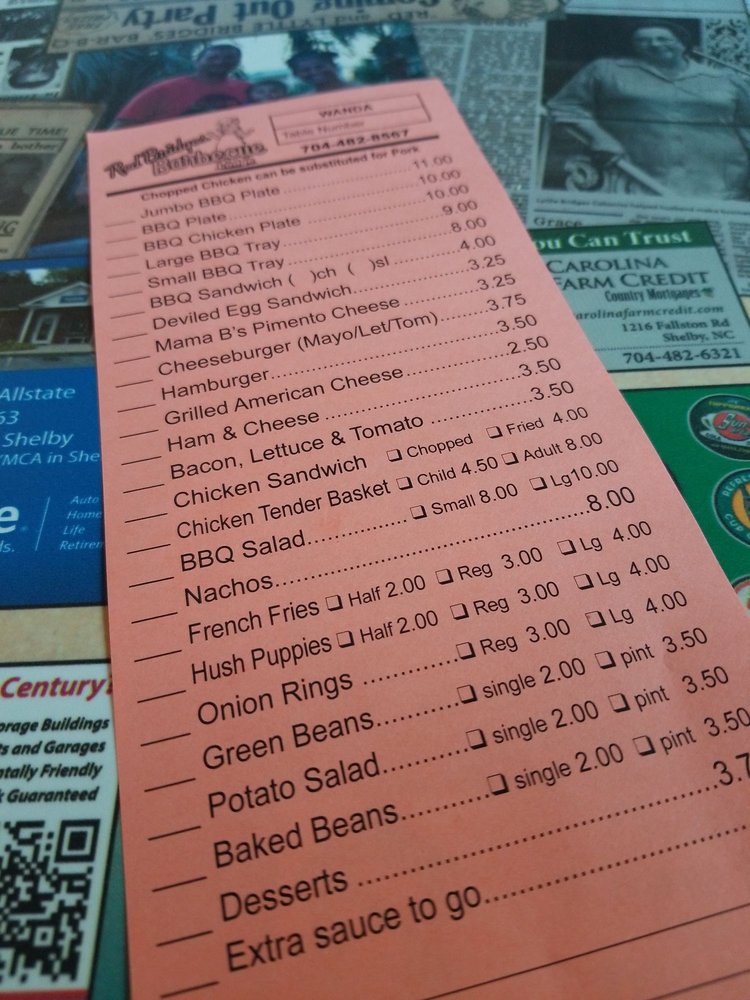 Coming Out Party
RED and LYTTLE BRIDGES BAR-B-Q
Red Bridges
Barbecue
Lodge
WANDA
Table Number
704-482-8567
Chopped Chicken can be substituted for Pork
Jumbo BBQ Plate 11.00
BBQ Plate 10.00
BBQ Chicken Plate 10.00
Large BBQ Tray 9.00
Small BBQ Tray 8.00
BBQ Sandwich ( )ch ( )sl 4.00
Deviled Egg Sandwich 3.25
Mama B's Pimento Cheese 3.25
Cheeseburger (Mayo/Let/Tom) 3.75
Hamburger 3.50
Grilled American Cheese 2.50
Ham & Cheese 3.50
Bacon, Lettuce & Tomato 3.50
Chicken Sandwich ❑ Chopped ❑ Fried 4.00
Chicken Tender Basket ❑ Child 4.50 ❑ Adult 8.00
BBQ Salad ❑ Small 8.00 ❑ Lg10.00
Nachos 8.00
French Fries ❑ Half 2.00 ❑ Reg 3.00 ❑ Lg 4.00
Hush Puppies ❑ Half 2.00 ❑ Reg 3.00 ❑ Lg 4.00
Onion Rings ❑ Reg 3.00 ❑ Lg 4.00
Green Beans ❑ single 2.00 ❑ pint 3.50
Potato Salad ❑ single 2.00 ❑ pint 3.50
Baked Beans ❑ single 2.00 ❑ pint 3.50
Desserts 3.7
Extra sauce to go
Grace
ou Can Trust
CAROLINA
FARM CREDIT
Country Mortgages
carolinafarmcredit.com
1216 Fallston Rd
Shelby, NC
704-482-6321
Allstate
63
Shelby
YMCA in She
e
ds.
Auto
Home
Life
Retirem
Century?
orage Buildings
ts and Garages
ntally Friendly
k Guaranteed